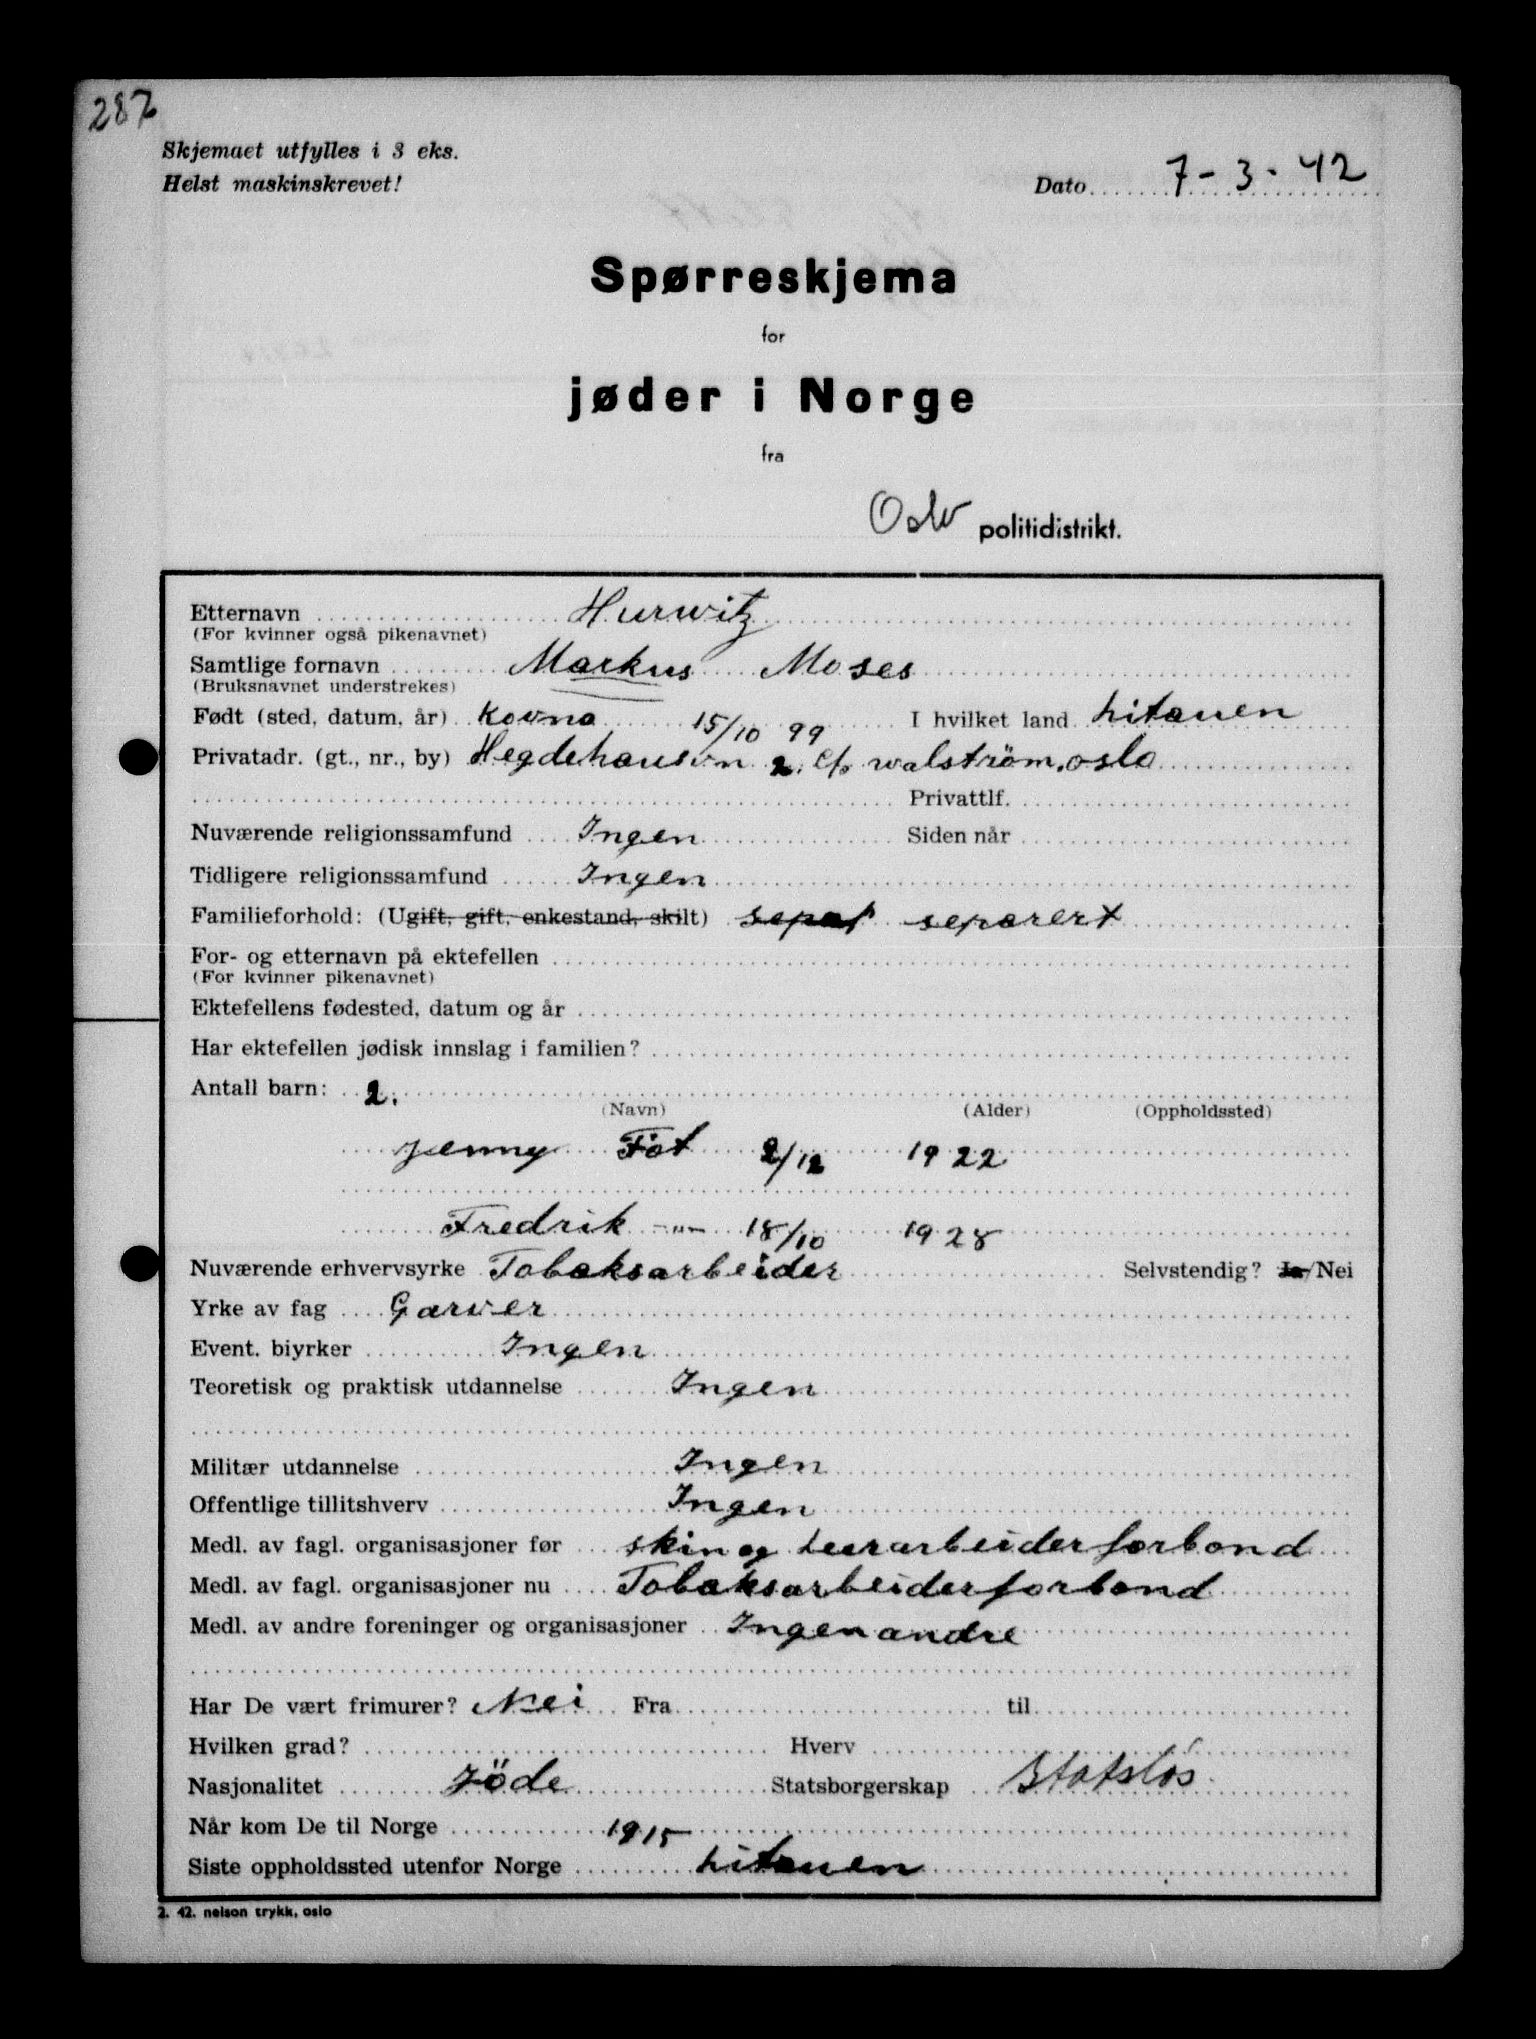 287
Skjemaet utfylles i 3 eks.
Helst maskinskrevet!
Dato 7-3-42
Spørreskjema
for
jøder i Norge
fra
Oslo politidistrikt.
Etternavn Hurwitz
(For kvinner også pikenavnet)
Samtlige fornavn Markus Moses
(Bruksnavnet understrekes)
Født (sted, datum, år) Kovno 15/10 99 I hvilket land Litauen
Privatadr. (gt., nr., by) Hegdehausvn 2. c/o walström, oslo
Privattlf.
Nuværende religionssamfund Ingen Siden når
Tidligere religionssamfund Ingen
Familieforhold: (Ugift, gift, enkestand, skilt) separ separert
For- og etternavn på ektefellen
(For kvinner pikenavnet)
Ektefellens fødested, datum og år
Har ektefellen jødisk innslag i familien?
Antall barn: 2.
(Navn) (Alder) (Oppholdssted)
Jenny Föt 2/12 1922
Fredrik -"- 18/10 1928
Nuværende erhvervsyrke Tobaksarbeider Selvstendig? Ja/Nei
Yrke av fag Garver
Event. biyrker Ingen
Teoretisk og praktisk utdannelse Ingen
Militær utdannelse Ingen
Offentlige tillitshverv Ingen
Medl. av fagl. organisasjoner før skin og Lærarbeiderforbond
Medl. av fagl. organisasjoner nu Tobaksarbeiderforbond
Medl. av andre foreninger og organisasjoner Ingen andre
Har De vært frimurer? Nei Fra til
Hvilken grad? Hverv
Nasjonalitet Jöde Statsborgerskap Statslös
Når kom De til Norge 1915
Siste oppholdssted utenfor Norge Litauen
2. 42. nelson trykk, oslo